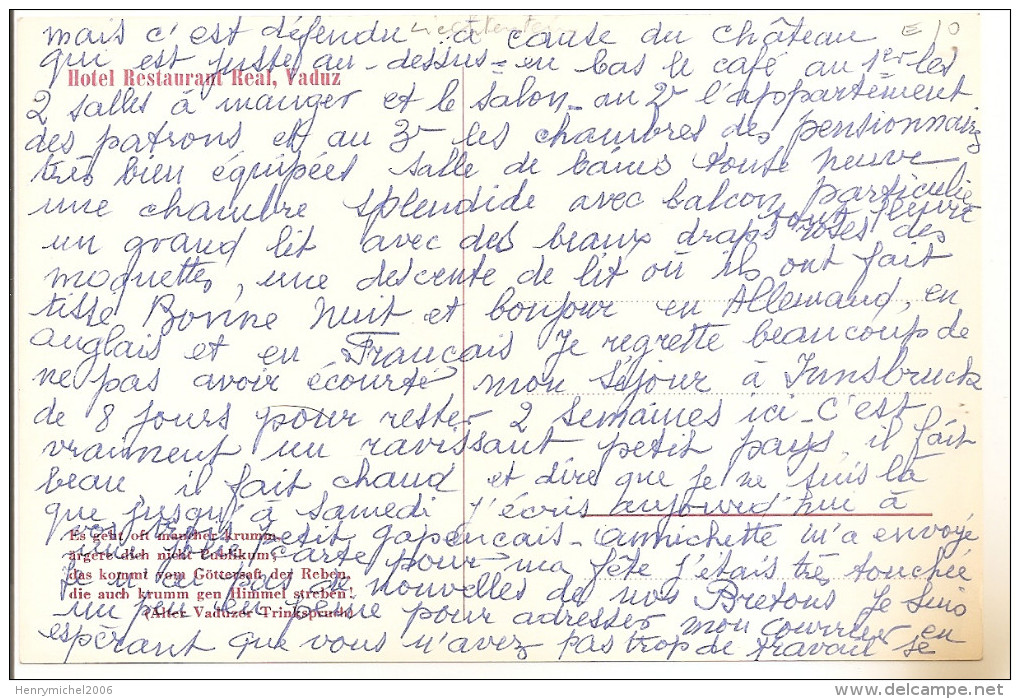 mais c'est défendu à cause du château
E 10
qui est juste au-dessus - en bas le café au 1er les
Hotel Restaurant Real, Vaduz
2 salles à manger et le salon - au 2e l'appartement
des patrons et au 3e les chambres des pensionnaires
très bien équipées salle de bains toute neuve
une chambre splendide avec balcon particulier
tout fleuri
un grand lit avec des beaux draps roses des
moquettes, une descente de lit où ils ont fait
tisse Bonne Nuit et bonjour en Allemand, en
anglais et en Français Je regrette beaucoup de
ne pas avoir écourté mon séjour à Innsbruck
de 8 jours pour rester 2 semaines ici - C'est
vraiment un ravissant petit pays, il fait
beau, il fait chaud et dire que je ne suis là
que jusqu'à samedi j'écris aujourd'hui à
petit gapençais - Annichette m'a envoyé
Es geht oft mancher krumm,
ärgere dich nicht Publikum;
carte pour ma fête j'étais très touchée
das kommt vom Göttersaft der Reben,
nouvelles de nos Bretons je suis
die auch krumm gen Himmel streben!
un peu en peine pour adresser mon courrier en
(Alter Vaduzer Trinkspruch)
espérant que vous n'avez pas trop de travail se
Henrymichel2006
www.delcampe.net